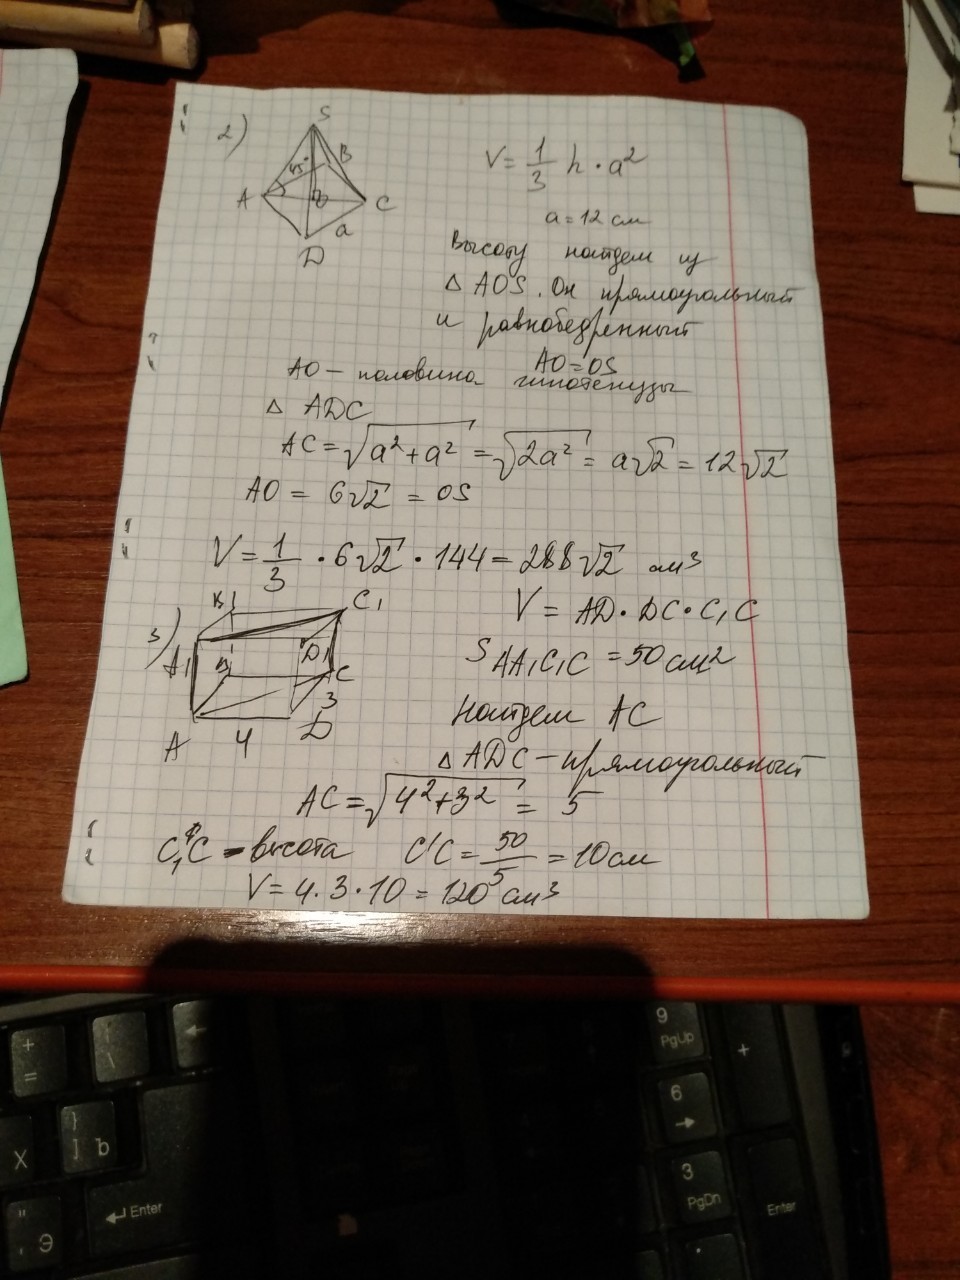 2)
S
45°
B
A
O
C
a
D
V = 1/3 h · a²
a = 12 см
Высоту найдем из
△ AOS. Он прямоугольный
и равнобедренный
AO = OS
AO – половина гипотенузы
△ ADC
AC = √(a² + a²) = √(2a²) = a√2 = 12√2
AO = 6√2 = OS
V = 1/3 · 6√2 · 144 = 288√2 см³
3)
B1
C1
A1
D1
B
C
3
A
4
D
V = AD · DC · C1C
S AA1C1C = 50 см²
Найдем AC
△ ADC – прямоугольный
AC = √(4² + 3²) = 5
C1C – высота C'C = 50/5 = 10 см
V = 4 · 3 · 10 = 120 см³
+
=
\
←
9
PgUp
+
}
]
Ъ
6
→
Х
Enter
3
PgDn
"
'
Э
Enter
.